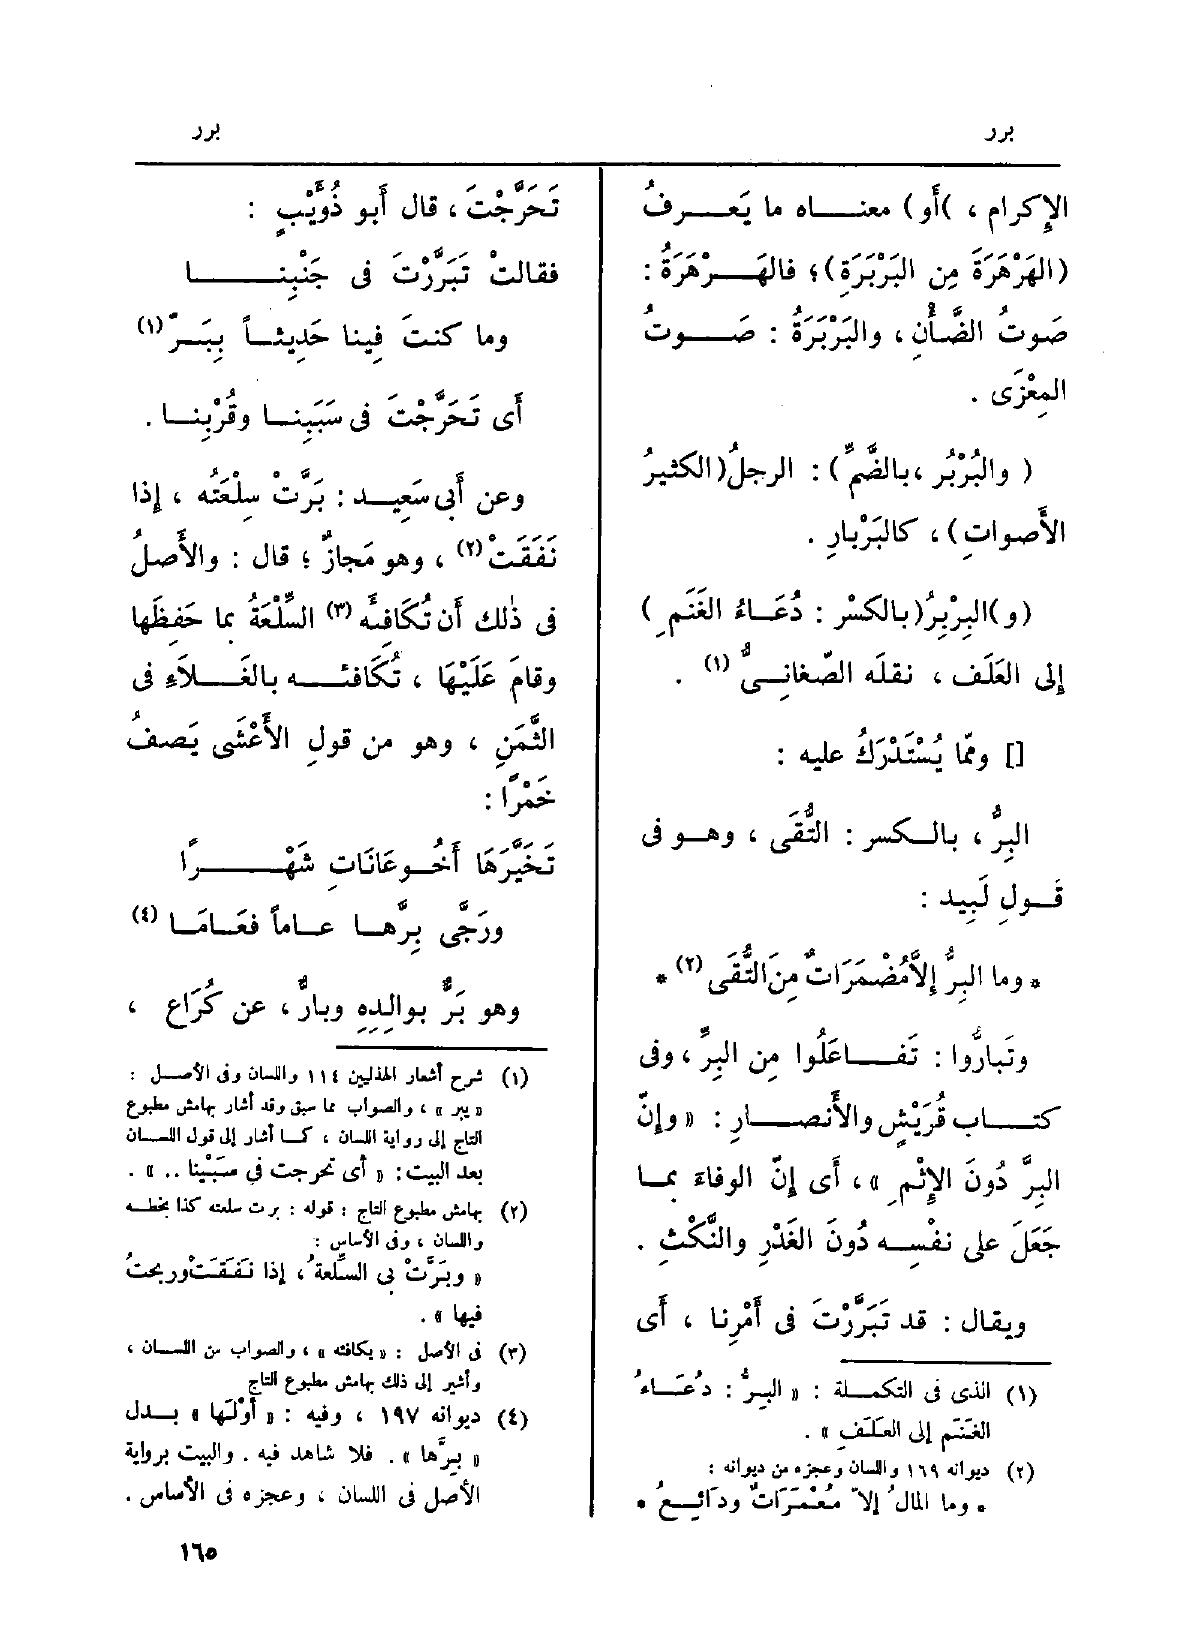 برر
برر
الإكرام ، )أو) معنــاه ما يَعــرفُ
(الهَرْهَرَةَ مِن البَرْبَرَةِ)؛ فالهَــرْهَرَةُ :
صَوتُ الضَّأْنِ ، والبَرْبَرَةُ : صَــوتُ
المِعْزَى .
( والبُرْبُر ،بالضَّمِّ) : الرجلُ(الكثيرُ
الأَصواتِ) ، كالبَرْبارِ .
(و)البِرْبِرُ(بالكسْر : دُعَــاءُ الغَنَمِ )
إلى العَلَف ، نقلَه الصّغانــىُّ (١) .
[] وممّا يُسْتَدْرَكُ عليه :
البِرُّ ، بالــكسر : التُّقَى ، وهــو فى
قَــولِ لَبِيد :
* وما البِرُّ إلاّمُضْمَرَاتٌ مِنَ التُّقَى (٢) *
وتَبارُّوا : تَفــاعَلُوا مِن البِرِّ ، وفى
كتــاب قُرَيْشٍ والأَنصــارِ : « وإنّ
البِرَّ دُونَ الإثْمِ » ، أَى إنّ الوفاءَ بمــا
جَعَلَ على نفْسِــه دُونَ الغَدْرِ والنَّكْثِ .
ويقال : قد تَبَرَّرْتَ فى أَمْرِنا ، أَى
(١) الذى فى التكمــلة : « البِرُّ : دُعَــاءُ
الغنَم إلى العَلَفِ » .
(٢) ديوانه ١٦٩ واللسان وعجزه من ديوانه :
* وما المالُ إلاّ مُعْمَرَاتٌ ودائــعُ *
تَحَرَّجْتَ ، قال أَبو ذُوَّيْبٍ :
فقالتْ تَبَرَّرْتَ فى جَنْبِنــا
وما كنتَ فِينا حَدِيثــاً بِبَــرّ (١)
أَى تَحَرَّجْتَ فى سَبَبِنــا وقُرْبِنــا .
وعن أَبى سَعِيــد : بَرَّتْ سِلْعَتُه ، إذا
نَفَقَتْ (٢) ، وهو مَجازٌ ؛ قال : والأَصلُ
فى ذٰلك أَن تُكَافِئَه (٣) السِّلْعَةُ بما حَفِظَها
وقامَ عَلَيْهَا ، تُكَافِئــه بالغَــلاَءِ فى
الثَّمَنِ ، وهو من قولِ الأَعْشَى يَصفُ
خَمْرًا :
تَخَيَّرَهَا أَخُــو عَانَاتِ شَهْــرًا
ورَجَّى بِرَّهــا عــاماً فعَــامَــا (٤)
وهو بَرٌّ بوالِدِهِ وبارٌّ ، عن كُرَاع ،
(١) شرح أشعار الهذليين ١١٤ واللسان وفى الأصــل :
« يبر » ، والصواب مما سبق وقد أشار بهامش مطبوع
التاج إلى رواية اللسان ، كــا أشار إلى قول اللســان
بعد البيت : « أى تحرجت فى سَبَبِنا .. » .
(٢) بهامش مطبوع التاج : قوله : برت سلعته كذا بخطــه
واللسان ، وفى الأساس :
« وبَرَّتْ بى السِّلعةُ ، إذا نَفَقَتْ وربحتُ
فيها » .
(٣) فى الأصل : « يكافئه » ، والصواب من اللســان ،
وأشير إلى ذلك بهامش مطبوع التاج
(٤) ديوانه ١٩٧ ، وفيه : « أَوّلَها » بــدل
« بِرَّها » . فلا شاهد فيه . والبيت برواية
الأَصل فى اللسان ، وعجزه فى الأساس .
١٦٥